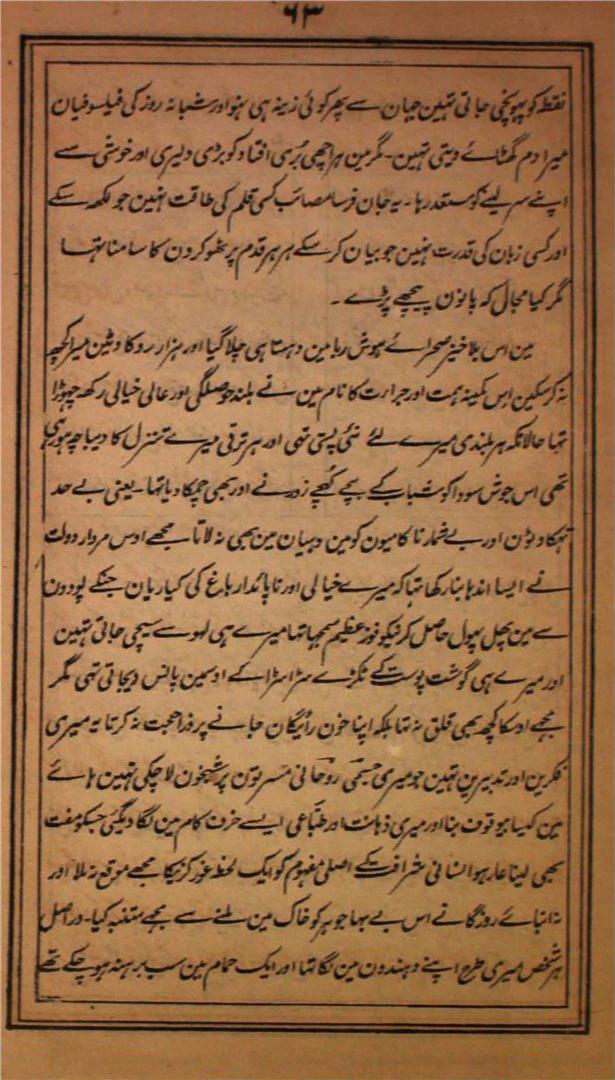 ۶۳
نقطہ کو پہونچی جاتی تہین جہان سے پھر کوئی زینہ ہی نہو اور شبانہ روز کی فیلسوفیان
میرا دم گھٹائے دیتی تہین۔ مگر مین ہر اچھی بُری افتاد کو بڑی دلیری اور خوشی سے
اپنے سر لینے کو مستعد رہا۔ یہ جان فرسا مصائب کسی قلم کی طاقت نہین جو لکھ سکے
اور کسی زبان کی قدرت نہین جو بیان کر سکے ہر ہر قدم پر ٹھوکرون کا سامنا تہا
مگر کیا مجال کہ پانون پیچھے پڑے۔
مین اس بلا خیز صحرائے ہوش ربا مین دہستا ہی چلا گیا اور ہزار روکاوٹین میرا کچھ
نہ کر سکین اِس کمینہ ہمت اور جرارت کا نام مین نے بلند حوصلگی اور عالی خیالی رکھ چہوڑا
تہا حالانکہ ہر بلندی میرے لئے نئی پستی تہی اور ہر ترقی میرے تنزل کا دیباچہ ہو رہی
تھی اس جوش سودا کو شباب کے بچے کُھچے زور نے اور بھی چمکا دیا تہا۔ یعنی بے حد
تہکاوٹون اور بے شمار ناکامیون کو مین دہیان مین بھی نہ لاتا مجھے اوس مردار دولت
نے ایسا اندہا بنا رکھا تہا کہ میرے خیالی اور ناپائدار باغ کی کیاریان جنکے پودون
سے مین پھل پھول حاصل کرنیکو فوز عظیم سمجہا تہا میرے ہی لہو سے سیچی جاتی تہین
اور میرے ہی گوشت پوست کے ٹکڑے سڑا سڑا کے اوسمین پانس دیجاتی تہی مگر
مجھے اوسکا کچھ بھی قلق نہ تہا بلکہ اپنا خون رائیگان جانے پر ذرا حجت نہ کرتا یہ میری
فکرین اور تدبیرین تہین جو میری جسمی روحانی مسرتون پر شبخون لا چکی تہین ہائے
مین کیسا بیوقوف بنا اور میری ذہانت اور طبّاعی ایسے حرف کام مین لگا دیگئی جسکو مفت
بھی لینا عار ہو انسانی شرافت کے اصلی مفہوم کو ایک لحظہ غور کرنیکا مجھے موقع نہ ملا اور
نہ ابنائے روزگار نے اس بے بہا جوہر کو خاک مین ملنے سے مجھے متنبہ کیا۔ دراصل
ہر شخص میری طرح اپنے دہندون مین لگا تہا اور ایک حمام مین سب برہنہ ہو چکے تھے